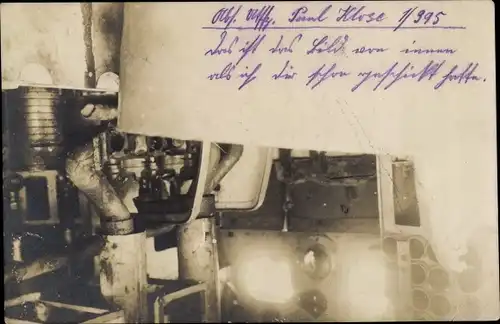 Abs. Uffz. Paul Klose 1/995
das ist das Bild von innen
als ich dir schon geschickt hatte.